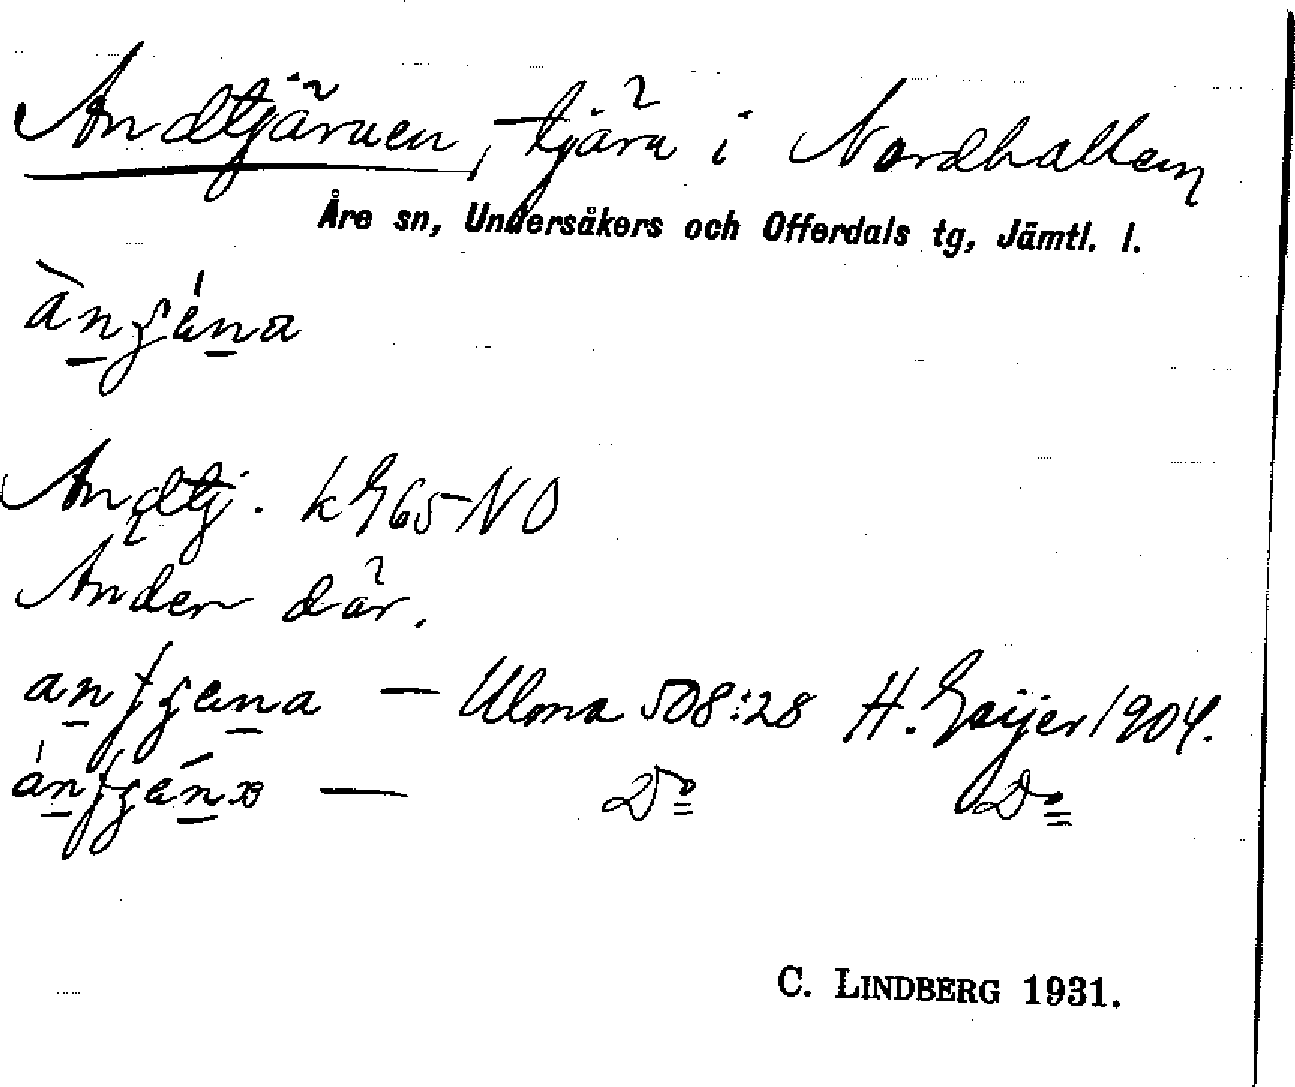 Andtjärnen, tjärn i Nordhallen
Åre sn, Undersåkers och Offerdals tg, Jämtl. l.
Andtj. kG65 NO
Änder där.
— Ulma 508:28 H. Geijer 1904.
— Do Do
C. LINDBERG 1931.